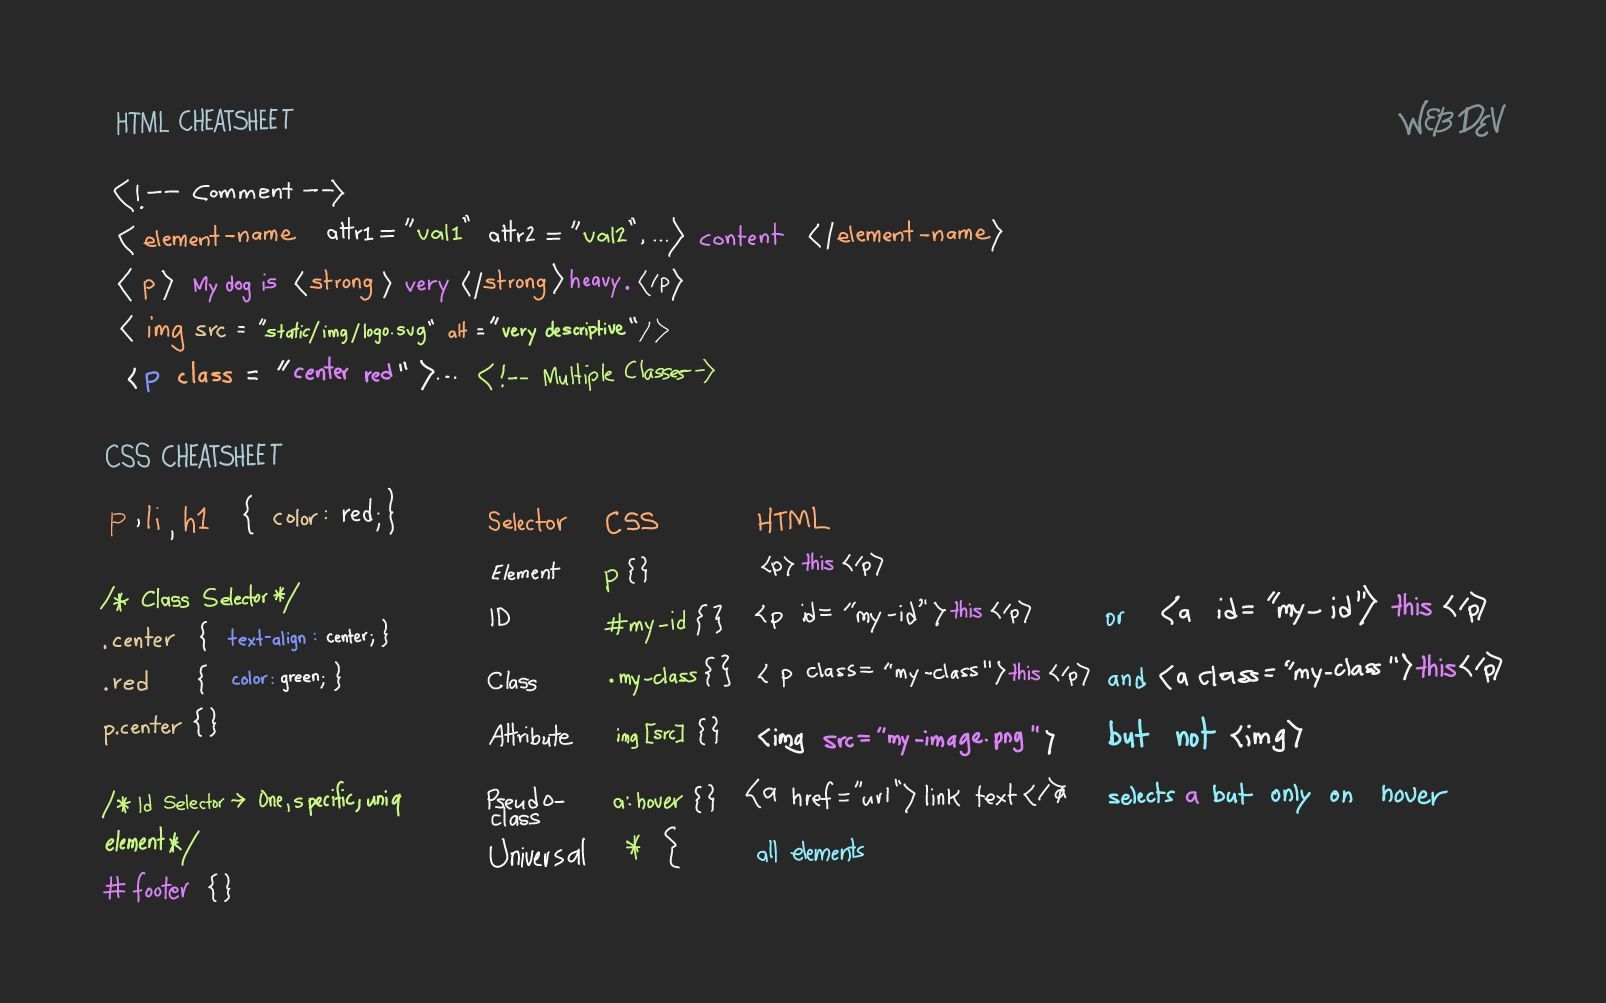 HTML CHEATSHEET
WEB DEV
<!-- Comment -->
<element-name attr1 = "val1" attr2 = "val2", ...> content </element-name>
<p> My dog is <strong> very </strong> heavy. </p>
<img src = "static/img/logo.svg" alt = "very descriptive"/>
<p class = "center red">... <!-- Multiple Classes-->
CSS CHEATSHEET
p,li,h1 { color: red;}
/* Class Selector */
.center { text-align: center; }
.red { color: green; }
p.center {}
/* Id Selector → One, specific, uniq
element */
#footer {}
Selector CSS HTML
Element p {} <p> this </p>
ID #my-id {} <p id= "my-id">this </p> or <a id= "my-id"> this </p>
Class .my-class {} <p class= "my-class">this </p> and <a class= "my-class">this</p>
Attribute img [src] {} <img src= "my-image.png"> but not <img>
Pseudo-
class a:hover {} <a href="url"> link text </a selects a but only on hover
Universal * { all elements